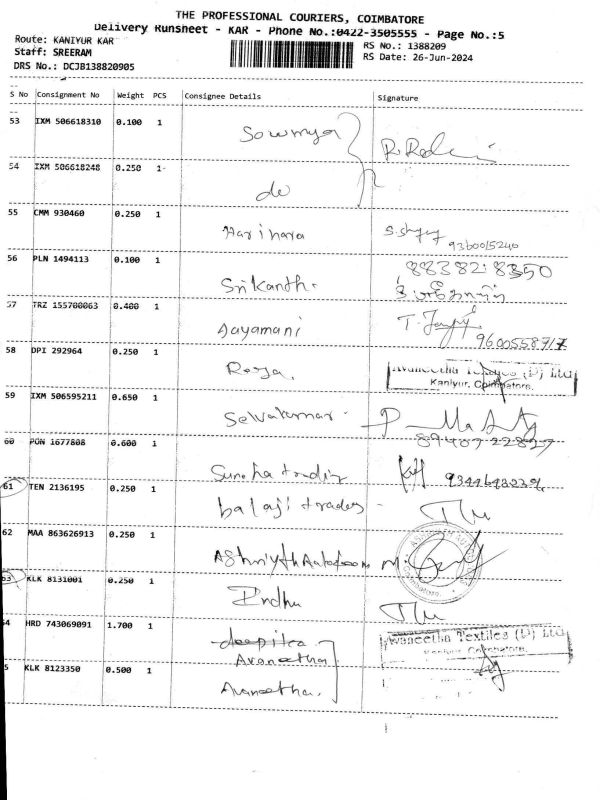 THE PROFESSIONAL COURIERS, COIMBATORE
Delivery Runsheet - KAR - Phone No.:0422-3505555 - Page No.:5
Route: KANIYUR KAR
RS No.: 1388209
Staff: SREERAM
RS Date: 26-Jun-2024
DRS No.: DCJB138820905
S No Consignment No Weight PCS Consignee Details Signature
53 IXM 506618310 0.100 1 Sowmya
54 IXM 506618248 0.250 1 do
55 CMM 930460 0.250 1 Harihara
9360015240
56 PLN 1494113 0.100 1 Srikanth.
88382 8350
57 TRZ 155700063 0.400 1 Jayamani
9600558717
58 DPI 292964 0.250 1 Roja.
Avaneetha Textiles (P) Ltd
Kaniyur, Coimbatore.
59 IXM 506595211 0.650 1 Selvakumar
8940722827
60 PON 1677808 0.600 1
61 TEN 2136195 0.250 1 balaji trades
62 MAA 863626913 0.250 1
63 KLK 8131001 0.250 1 Indhu
64 HRD 743069091 1.700 1 deepika
Avaneetha
Avaneetha Textiles (P) Ltd
Kaniyur, Coimbatore.
5 KLK 8123350 0.500 1 Avaneetha.